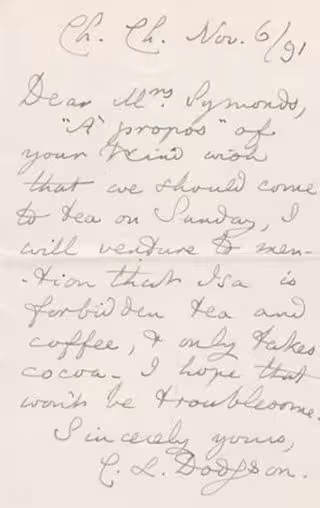 Ch. Ch. Nov. 6/91
Dear Mrs Symonds,
"A propos" of
your kind wish
that we should come
to tea on Sunday, I
will venture to men-
-tion that Isa is
forbidden tea and
coffee, & only takes
cocoa. I hope that
won't be troublesome.
Sincerely yours,
C. L. Dodgson.